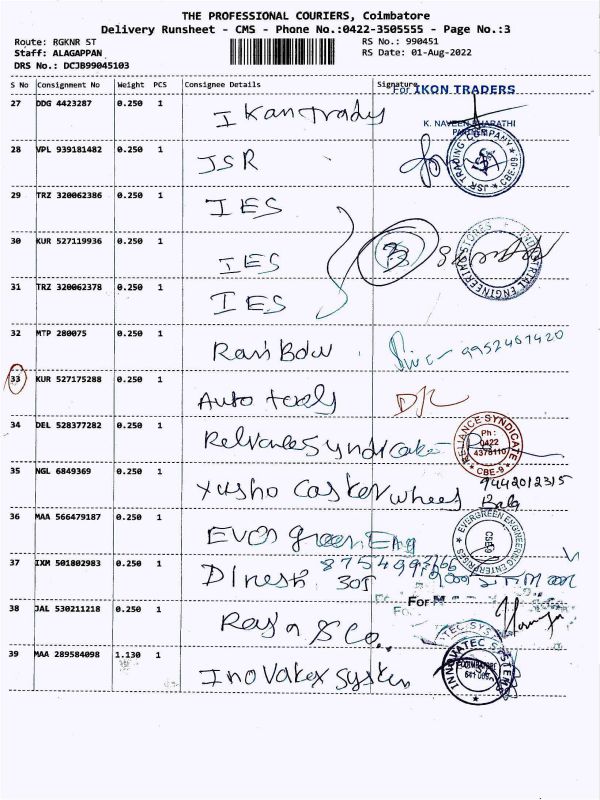 THE PROFESSIONAL COURIERS, Coimbatore
Delivery Runsheet - CMS - Phone No.:0422-3505555 - Page No.:3
Route: RGKNR ST
RS No.: 990451
Staff: ALAGAPPAN
RS Date: 01-Aug-2022
DRS No.: DCJB99045103
S No Consignment No Weight PCS Consignee Details Signature
For IKON TRADERS
27 DDG 4423287 0.250 1 I Kan Trady
K. NAVEEN BHARATHI
28 VPL 939181482 0.250 1 JSR for
JSR TRADING COMPANY CBE-09
29 TRZ 320062386 0.250 1 IES
30 KUR 527119936 0.250 1 IES 3
31 TRZ 320062378 0.250 1 IES
32 MTP 280075 0.250 1 RainBow 9952461420
33 KUR 527175288 0.250 1 Auto tools D/L
34 DEL 528377282 0.250 1 Reliance Syndicate
RELIANCE SYNDICATE Ph: 0422 4378110 CBE-9
35 NGL 6849369 0.250 1 Yusho Caster wheel 9442012315
Bala
36 MAA 566479187 0.250 1 Ever green Eng
EVERGREEN ENGINEERING ENTERPRISES CBE9
37 IXM 501802983 0.250 1 Dinesh 305
For
38 JAL 530211218 0.250 1 Raja & Co.
39 MAA 289584098 1.130 1 Inovatex system
INNOVATEC SYSTEMS COIMBATORE